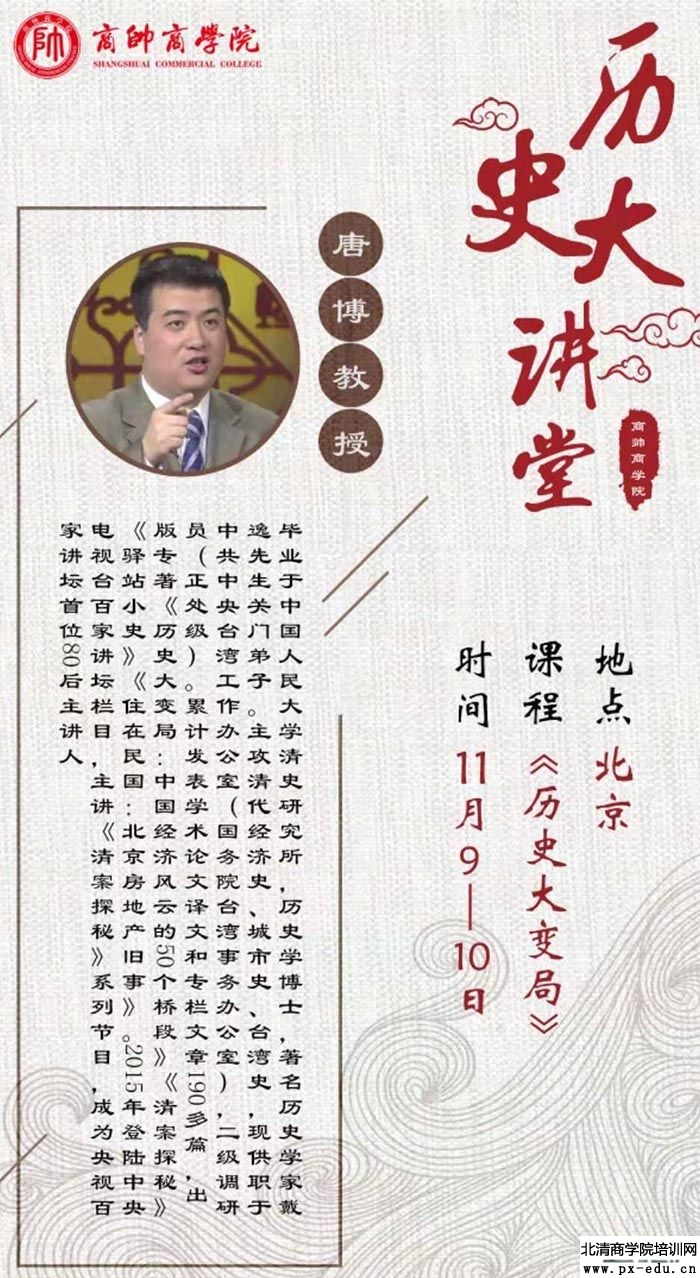 帥
商帥商學院
SHANGSHUAI COMMERCIAL COLLEGE
历史大讲堂
商帅商学院
唐博教授
毕业于中国人民大学清史研究所，历史学博士，著名历史学家戴
逸先生关门弟子。主攻清代经济史、城市史、台湾史，现供职于
中共中央台湾工作办公室（国务院台湾事务办公室），二级调研
员（正处级）。累计发表学术论文译文和专栏文章190多篇，出
版专著《历史大变局：中国经济风云的50个桥段》《清案探秘》
《驿站小史》《住在民国：北京房地产旧事》。2015年登陆中央
电视台百家讲坛栏目，主讲《清案探秘》系列节目，成为央视百
家讲坛首位80后主讲人。
地点 北京
课程《历史大变局》
时间 11月9—10日
北清商学院培训网
www.px-edu.cn